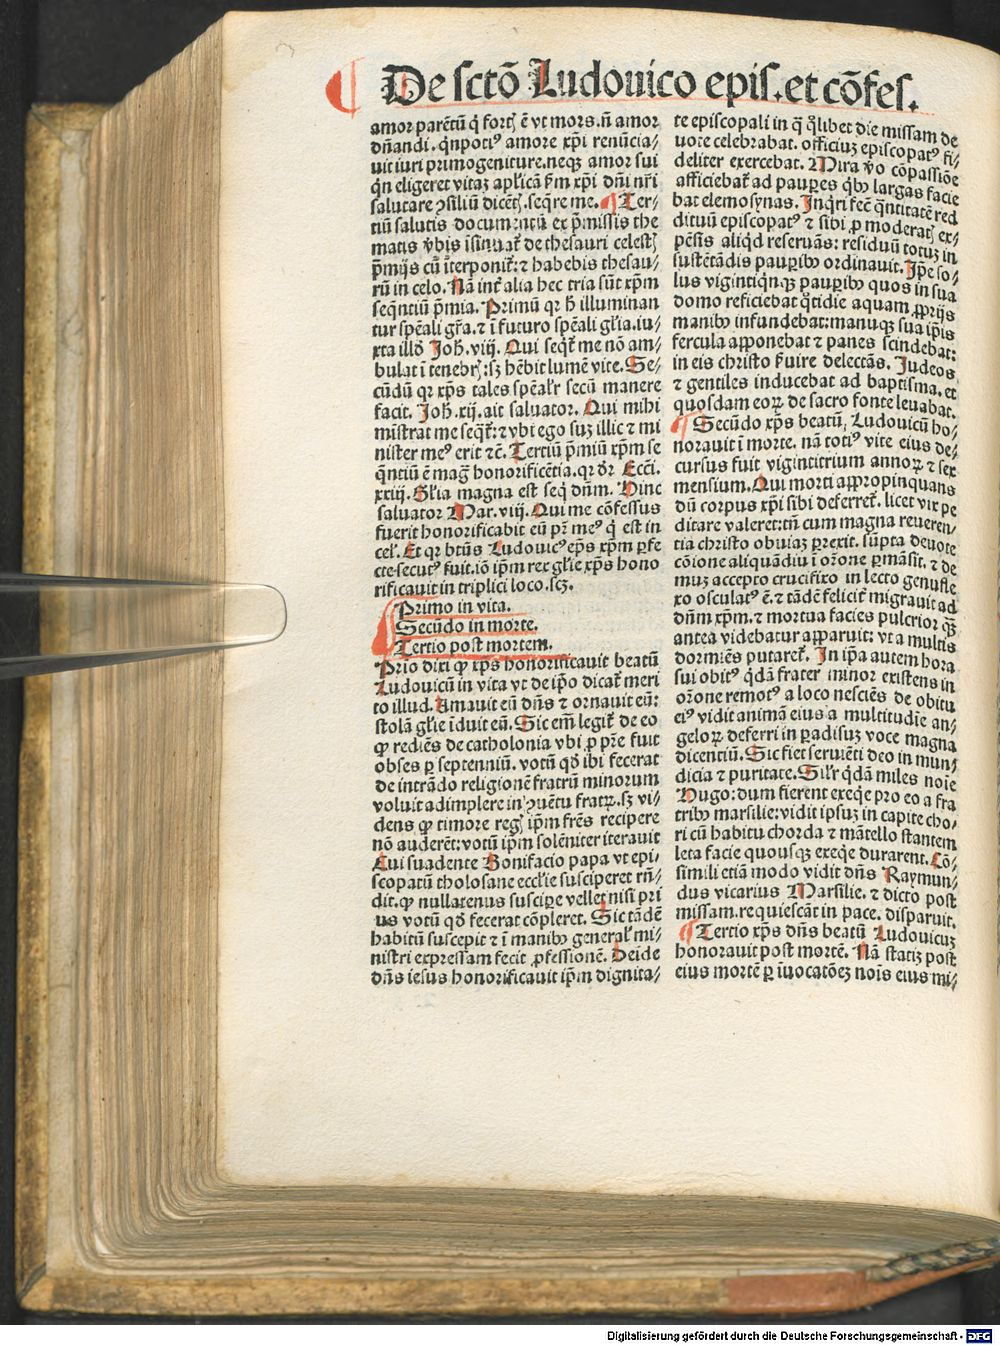 De sctō Ludouico epiſ. et cōfeſ.
amor parētū q̄ fortꝭ ē vt mors. n̄ amor
dn̄andi. qn̄poti⁹ amore xp̄i renūcia⸗
uit iuri primogeniture. neqꝫ amor sui
q̄n eligeret vitaꝫ apl̓icā p̄m xp̄i dn̄i nr̄i
salutare ꝯsiliū dicētꝭ. seq̄re me. ¶ Ter⸗
tiū salutis documentū ex p̄missis the
matis v̄bis īsinuat᷑ de thesauri celestꝭ
p̄mijs cū īterponit᷑: ⁊ habebis thesau⸗
rū in celo. Nā int᷑ alia hec tria sūt xp̄m
seq̄ntiū p̄mia. Primū qꝛ h̄ illuminan
tur sp̄eali gr̄a. ⁊ ī futuro sp̄eali gl̓ia. iu⸗
xta illd̓ Joh̄. viij. Qui seq̄t᷑ me nō am⸗
bulat ī tenebrꝭ: sꝫ hēbit lumē vite. Se⸗
cūdū qꝛ xp̄s tales sp̄eal̓r secū manere
facit. Joh̄. xij. ait saluator. Qui mihi
mīstrat me seq̄t᷑: ⁊ vbi ego suꝫ illic ⁊ mi
nister me⁹ erit ⁊c̄. Tertiū p̄miū xp̄m se
q̄ntiū ē mag̓ honorificētia. qꝛ d̓r Ecc̄i.
xxiij. Gl̓ia magna est seq̄ dn̄m. Hinc
saluator Mar. viij. Qui me cōfessus
fuerit honorificabit eū pr̄ me⁹ q̄ est in
cel̓. Et qꝛ btūs Ludouic⁹ ep̄s xp̄m ꝑfe
cte secut⁹ fuit. iō ip̄m rex gl̓ie xp̄s hono
rificauit in triplici loco. scꝫ.
Primo in vita.
Secūdo in morte.
Tertio post mortem.
Prīo dixi ꝙ xp̄s honorificauit beatū
Ludouicū in vita vt de ip̄o dicat᷑ meri
to illud. Amauit eū dn̄s ⁊ ornauit eū:
stolā gl̓ie īduit eū. Sic em̄ legit᷑ de eo
ꝙ rediēs de catholonia vbi ꝓ pr̄e fuit
obses ꝑ septenniū. votū qd̓ ibi fecerat
de intrādo religionē fratrū minorum
voluit adimplere in ꝯuētu fratꝝ. sꝫ vi⸗
dens ꝙ timore regꝭ ip̄m frēs recipere
nō auderēt: votū ip̄m solēniter iterauit
Cui suadente Bonifacio papa vt epi⸗
scopatū tholosane eccl̓ie susciperet rn̄⸗
dit. ꝙ nullatenus suscipe vellet nisi pri
us votū qd̓ fecerat cōpleret. Sic tādē
habitū suscepit ⁊ ī manibꝰ general̓ mi⸗
nistri expressam fecit ꝓfessionē. Deīde
dn̄s iesus honorificauit ip̄m dignita⸗
te episcopali in q̄ q̄libet die missam de
uote celebrabat. officiuꝫ episcopat⁹ fi⸗
deliter exercebat. Mira v̄o cōpassiōe
afficiebat᷑ ad pauꝑes qͥbꝰ largas facie
bat elemosynas. Inq̄ri fec̄ q̄ntitatē red
dituū episcopat⁹ ⁊ sibi ꝓ moderatꝭ ex⸗
pēsis aliqd̓ reseruās: residuū totuꝫ in
sustētādis pauꝑibꝰ ordinauit. Ip̄e so⸗
lus vigintiqnqꝫ pauꝑibꝰ quos in sua
domo reficiebat q̄tidie aquam ꝓprijs
manibꝰ infundebat: manuqꝫ sua ip̄is
fercula apponebat ⁊ panes scindebat:
in eis christo ẜuire delectās. Judeos
⁊ gentiles inducebat ad baptisma. et
quosdam eoꝝ de sacro fonte leuabat.
¶ Secūdo xp̄s beatū Ludouicū ho⸗
norauit ī morte. nā toti⁹ vite eius de⸗
cursus fuit vigintitrium annoꝝ ⁊ sex
mensium. Qui morti appropinquans
dū corpus xp̄i sibi deferret᷑. licet vix pe
ditare valeret: tn̄ cum magna reueren⸗
tia christo obuiaꝫ ꝑrexit. sūpta deuote
cōione aliquādiu ī or̄one ꝑmāsit. ⁊ de
muꝫ accepto crucifixo in lecto genufle
xo osculat⁹ ē. ⁊ tādē felicit᷑ migrauit ad
dn̄m xp̄m. ⁊ mortua facies pulcrior qꝫ
antea videbatur apparuit: vt a multis
dormiēs putaret᷑. In ip̄a autem hora
sui obit⁹ q̄dā frater minor existens in
or̄one remot⁹ a loco nesciēs de obitu
ei⁹ vidit animā eius a multitudīe an⸗
geloꝝ deferri in ꝑadisuꝫ voce magna
dicentiū. Sic fiet seruiēti deo in mun⸗
dicia ⁊ puritate. Sil̓r q̄dā miles noīe
Hugo: dum fierent exeq̄e pro eo a fra
tribꝰ marsilie: vidit ipsuꝫ in capite cho⸗
ri cū habitu chorda ⁊ mātello stantem
leta facie quousqꝫ exeq̄e durarent. Cō⸗
simili etiā modo vidit dn̄s Raymun⸗
dus vicarius Marsilie. ⁊ dicto post
missam. requiescāt in pace. disparuit.
¶ Tertio xp̄s dn̄s beatū Ludouicuꝫ
honorauit post mortē. Nā statiꝫ post
eius mortē ꝑ īuocatōeꝫ noīs eius mi⸗
Digitalisierung gefördert durch die Deutsche Forschungsgemeinschaft - DFG